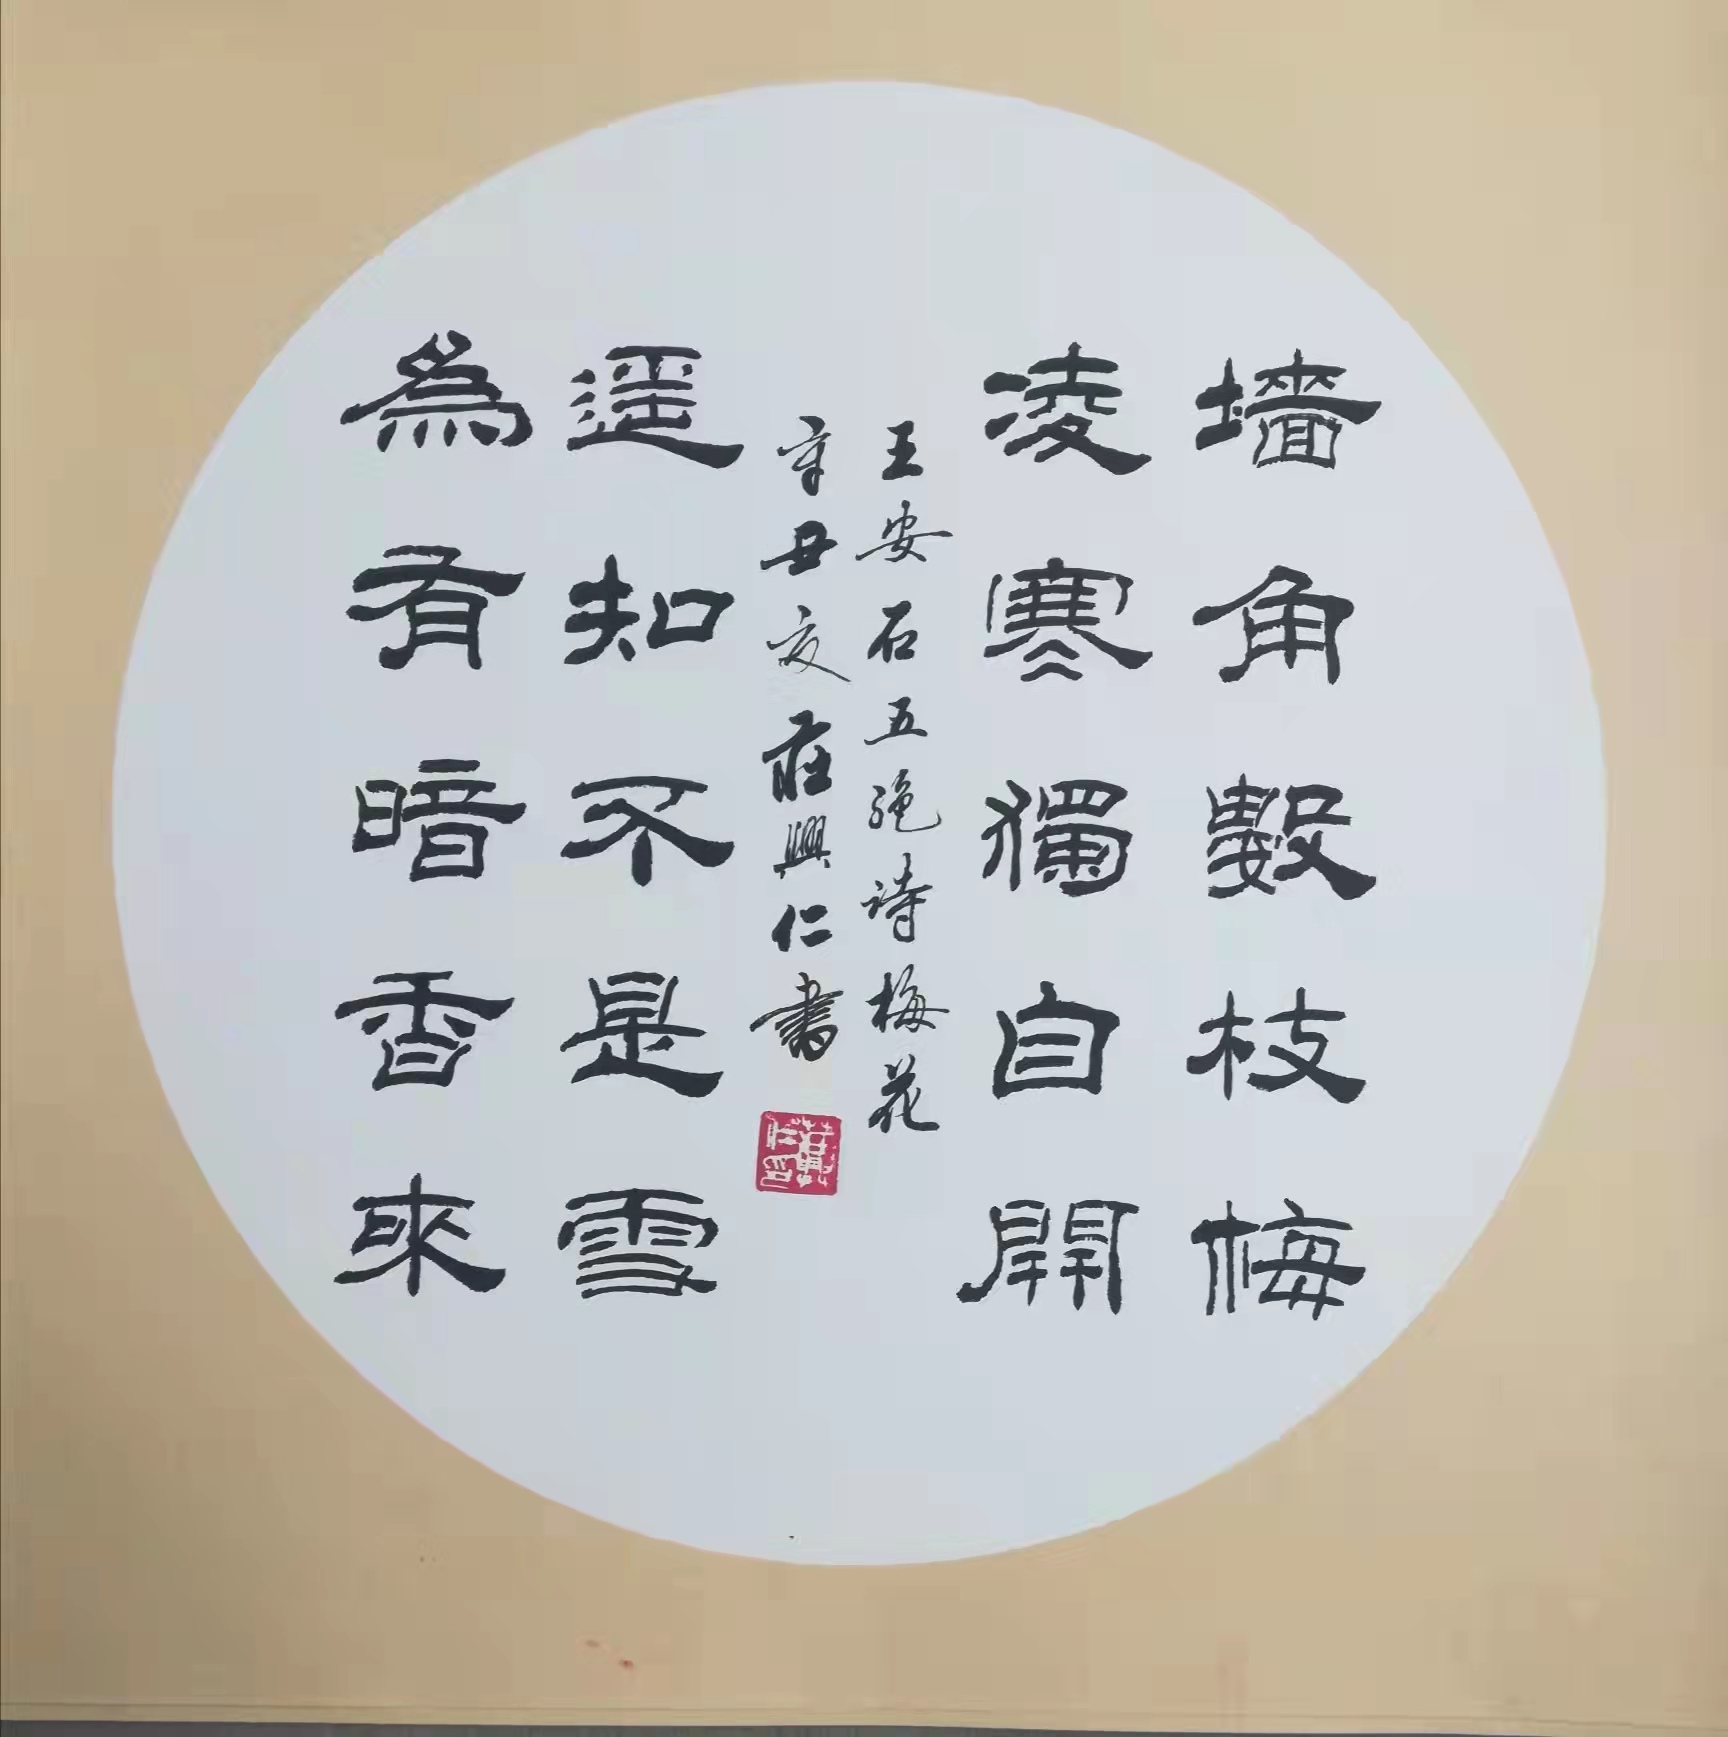 墻角數枝梅
凌寒獨自開
遥知不是雪
為有暗香來
王安石五绝诗梅花
辛丑夏莊興仁書